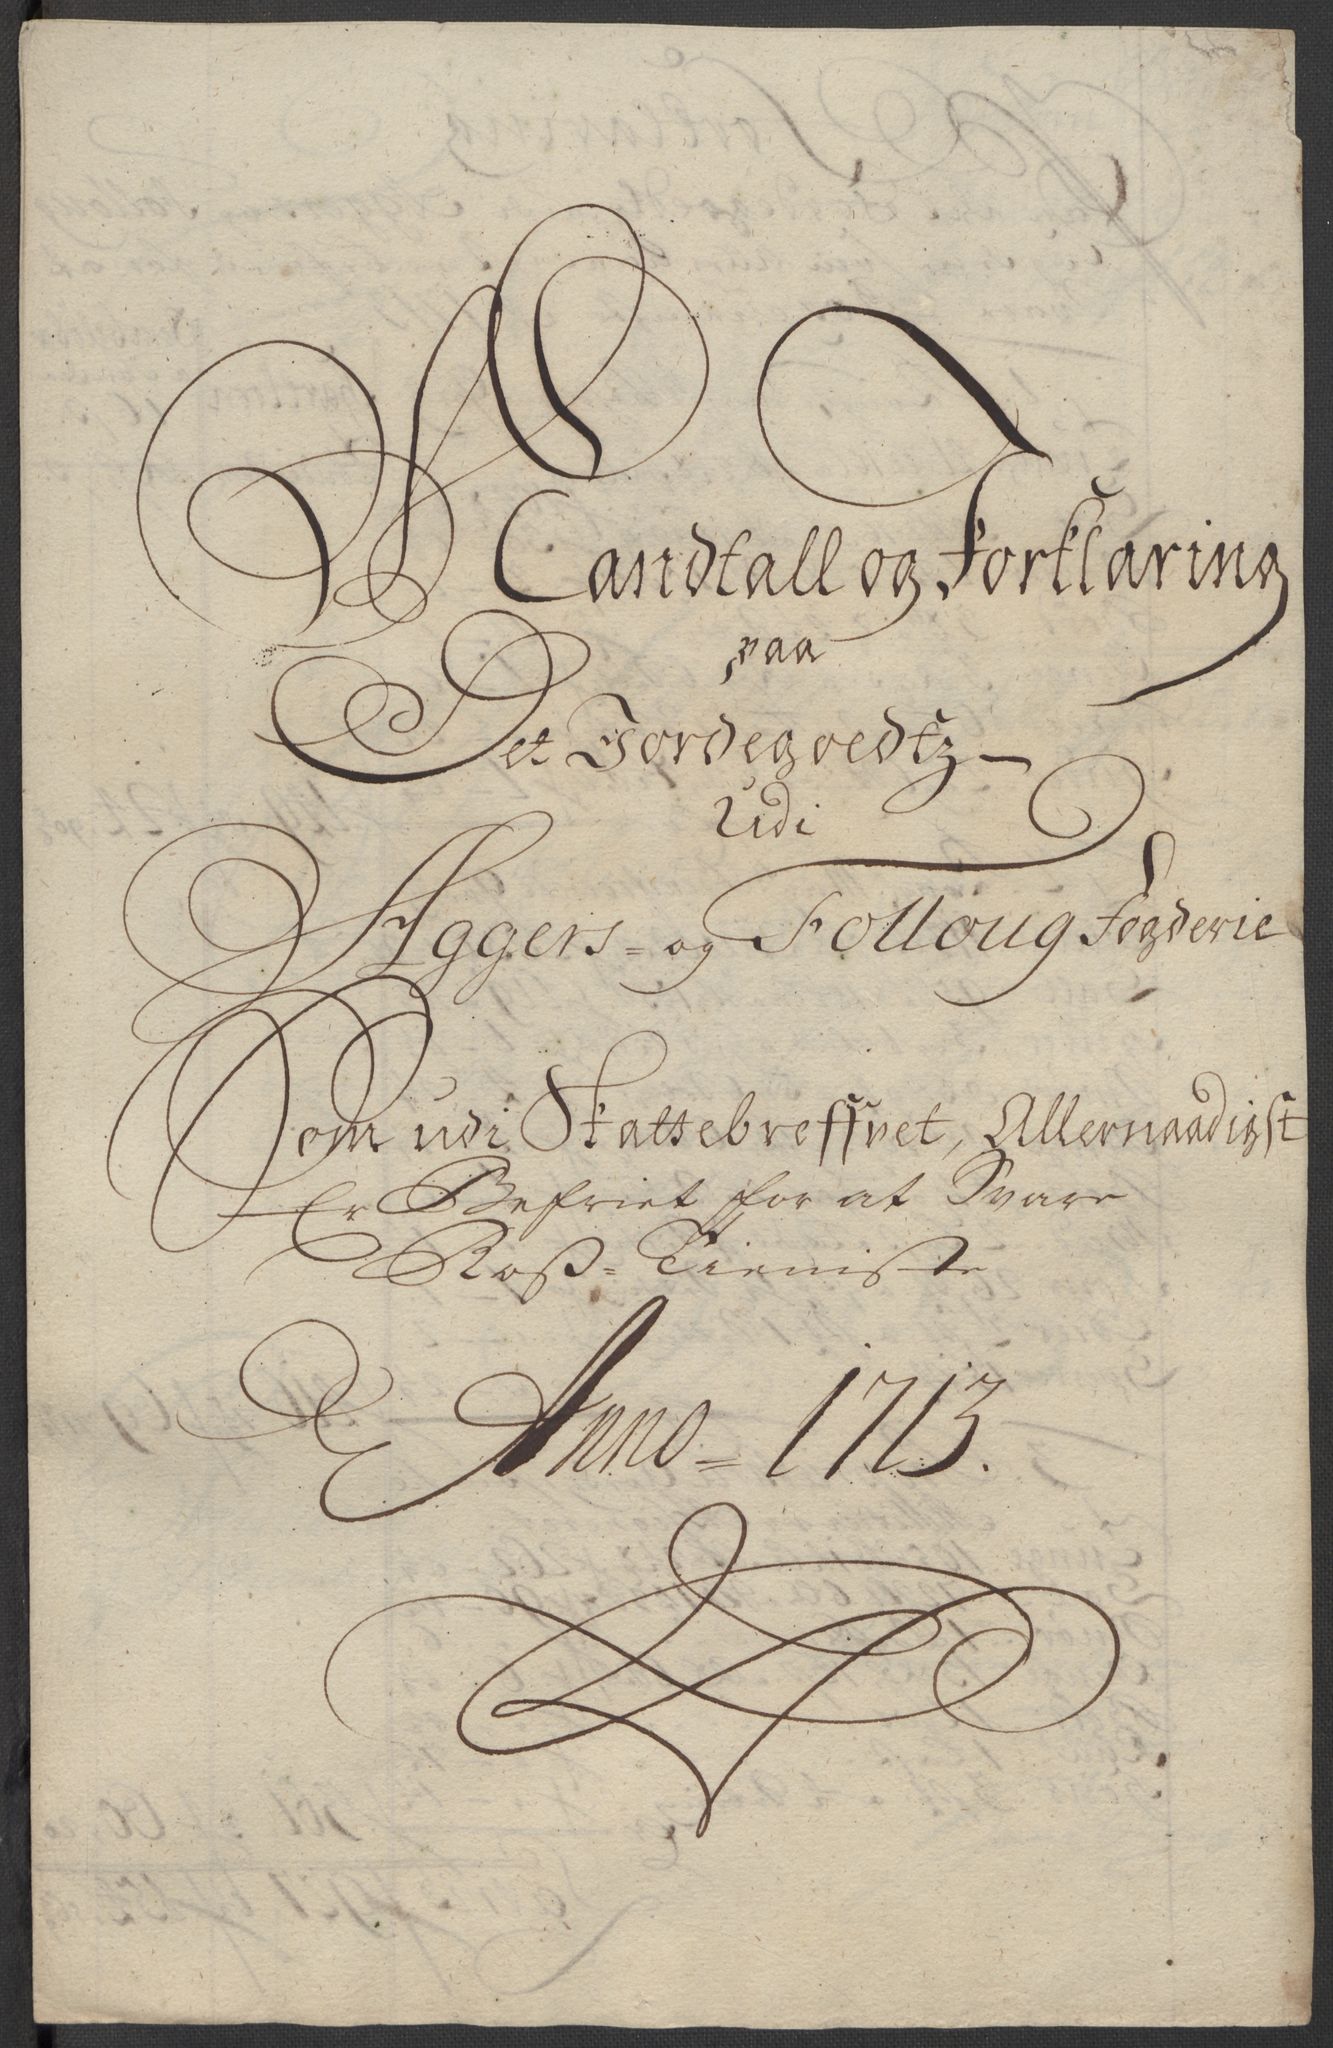 Mandtall og Forklaring
paa
Det Jordegoedtz
Udi
Aggers= og Folloug Fogderie
Som udi Skattebreffvet, Allernaadigst
Er Befriet for at Svare
Roß=Tieniste
Anno= 1713.